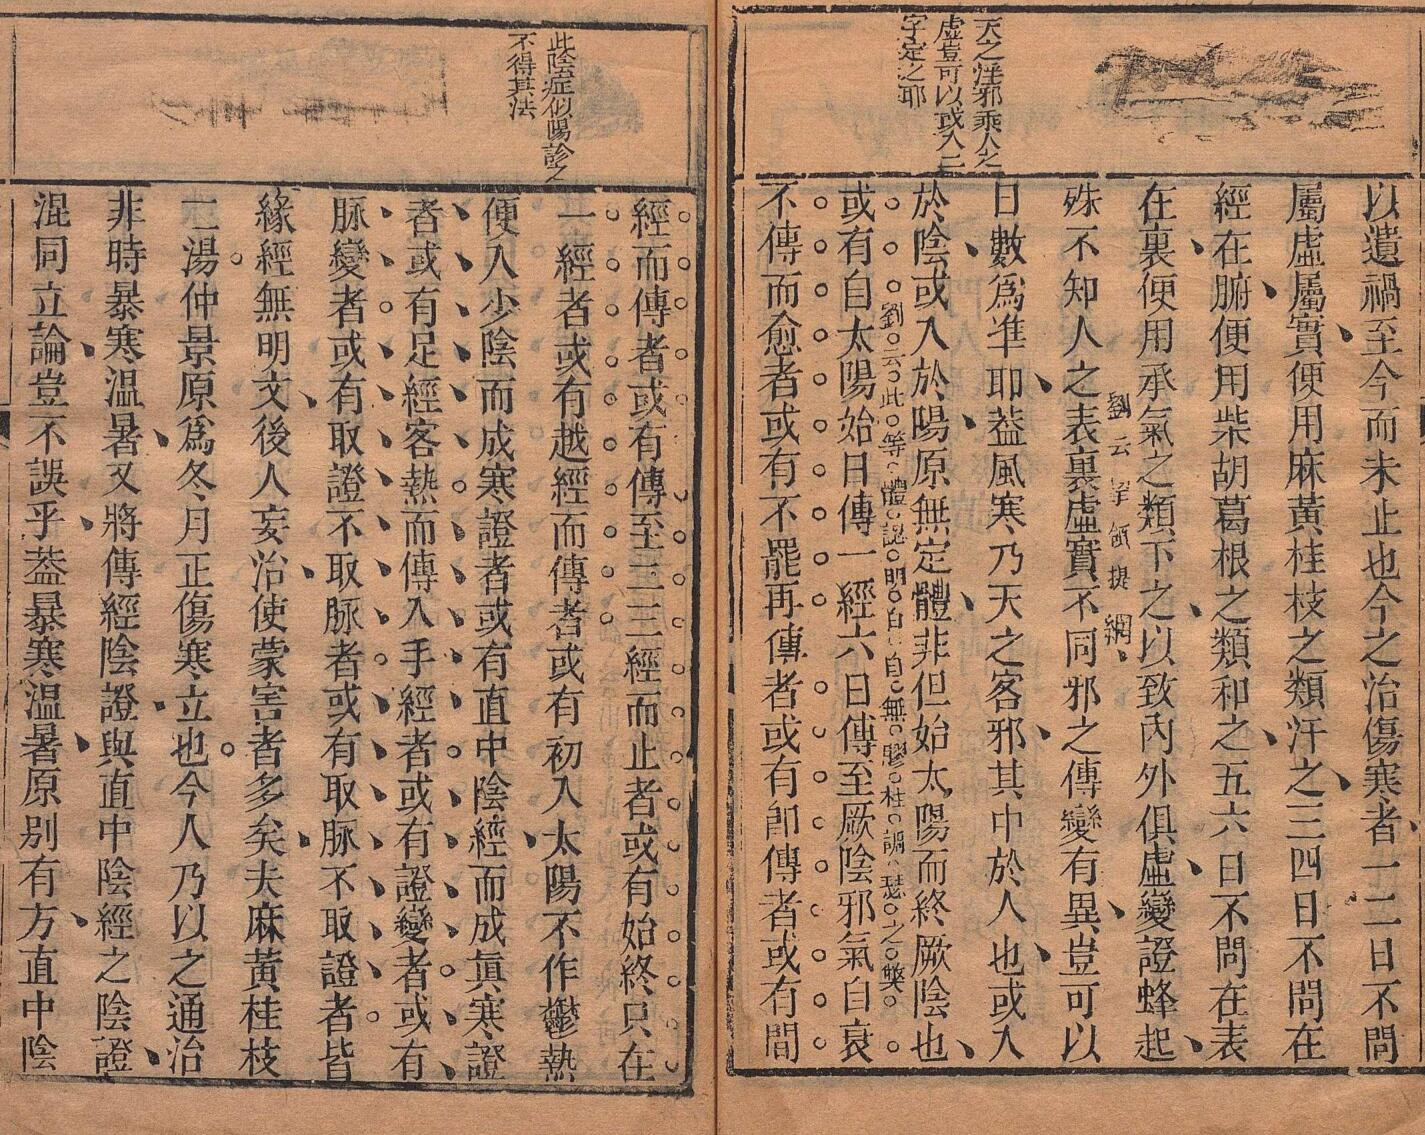 天之淫邪乘人之
虛豈可以或入二
字定之耶
以遺禍至今而未止也今之治傷寒者一二日不問
屬虛屬實便用麻黃桂枝之類汗之三四日不問在
經在腑便用柴胡葛根之類和之五六日不問在表
在裏便用承氣之類下之以致內外俱虛變證蜂起
劉云挈領提綱
殊不知人之表裏虛實不同邪之傳變有異豈可以
日數爲準耶葢風寒乃天之客邪其中於人也或入
於陰或入於陽原無定體非但始太陽而終厥陰也
劉云此等體認明白自無膠柱調瑟之獘
或有自太陽始日傳一經六日傳至厥陰邪氣自衰
不傳而愈者或有不罷再傳者或有卽傳者或有間
此陰症似陽診之
不得其法
經而傳者或有傳至二三經而止者或有始終只在
一經者或有越經而傳者或有初入太陽不作鬱熱
便入少陰而成寒證者或有直中陰經而成眞寒證
者或有足經客熱而傳入手經者或有證變者或有
脉變者或有取證不取脉者或有取脉不取證者皆
緣經無明文後人妄治使蒙害者多矣夫麻黃桂枝
二湯仲景原爲冬月正傷寒立也今人乃以之通治
非時暴寒溫暑又將傳經陰證與直中陰經之陰證
混同立論豈不誤乎葢暴寒溫暑原別有方直中陰